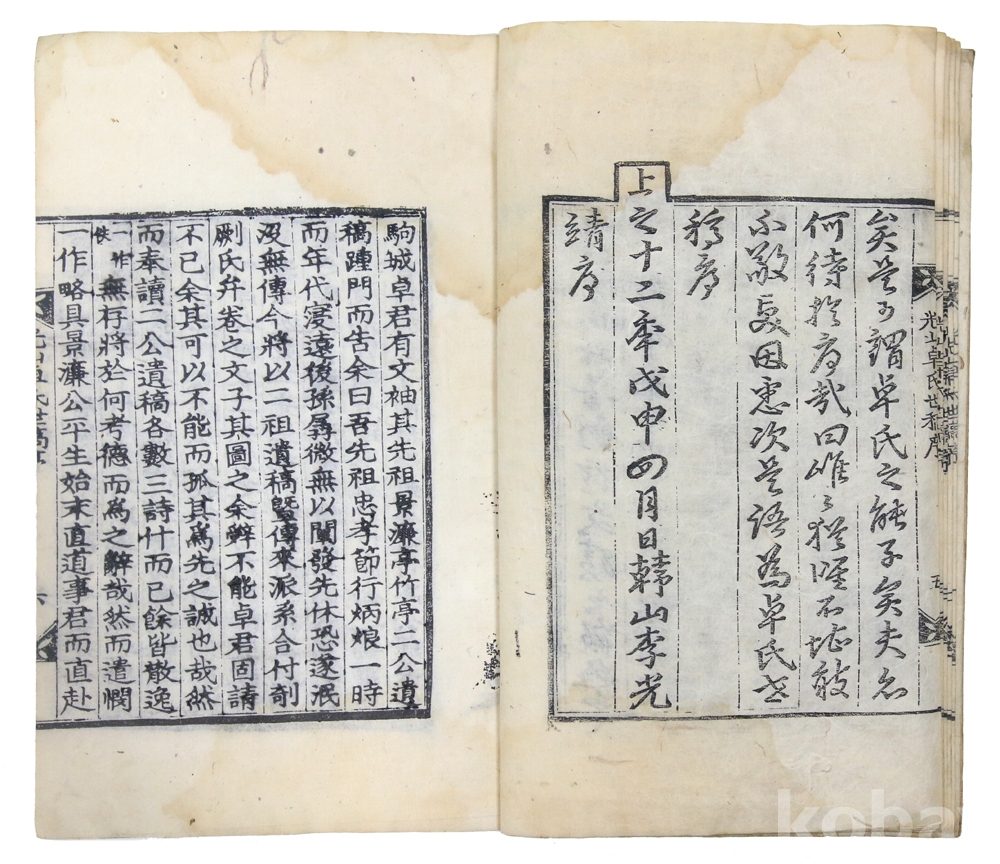 矣是可謂卓氏之能子矣夫名
何待於序哉曰唯唯猶
不敢
忠次是語為卓氏世
稿序
上之十二年戊申四月日韓山李光
靖序
光山卓氏世稿序
五
駒城卓君有文袖其先祖景濂亭竹亭二公遺
稿踵門而告余曰吾先祖忠孝節行炳烺一時
而年代寖遠後孫甞微無以闡發先休恐遂泯
沒無傳今將以二祖遺稿曁傳來派系合付剞
劂氏弁卷之文子其圖之余辭不能卓君固請
不已余其可以不能而孤其爲先之誠也哉然
而奉讀二公遺稿各數三詩什而已餘皆散逸
一作佚無存將於何考德而爲之辭哉然而遣憫
一作略具景濂公平生始末直道事君而直赴
光山卓氏世稿序
六
koba